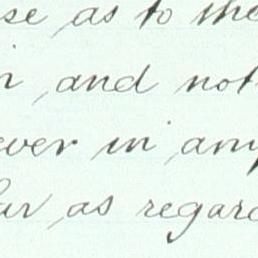 se as to the
, and not
ever in any
far, as regard